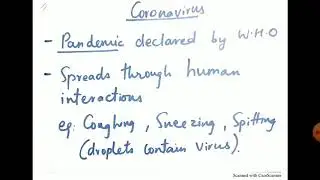 Coronavirus
- Pandemic declared by W.H.O
- Spreads through human
interactions
eg: Coughing, Sneezing, Spitting
(droplets contain virus).
Scanned with CamScanner